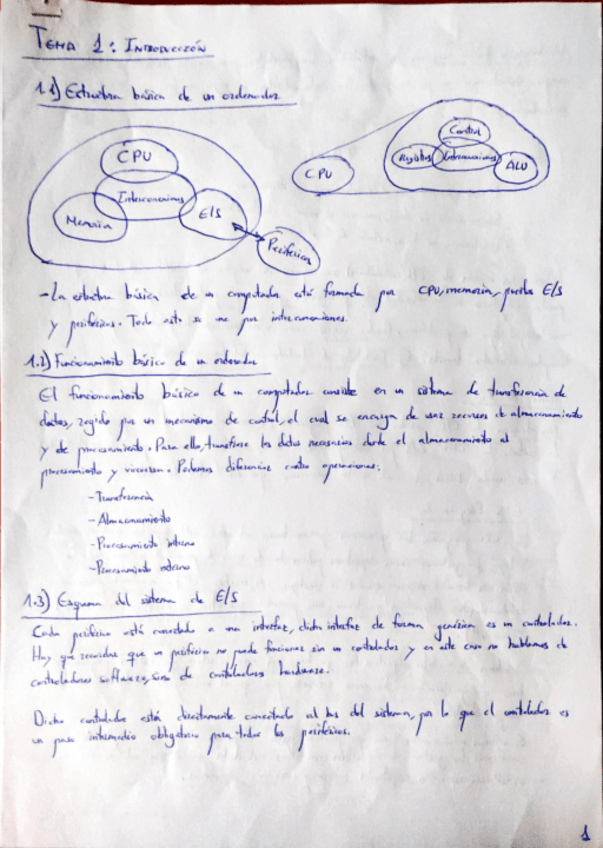 TEMA 1: INTRODUCCIÓN
1.1) Estructura básica de un ordenador
CPU
Interconexiones
Memoria
E/S
Periféricos
CPU
Control
Registros
Interconexiones
ALU
-La estructura básica de un computador está formada por CPU, memoria, puertos E/S
y periféricos. Todo esto se une por interconexiones.
1.2) Funcionamiento básico de un ordenador
El funcionamiento básico de un computador consiste en un sistema de transferencia de
datos, regido por un mecanismo de control, el cual se encarga de usar recursos de almacenamiento
y de procesamiento. Para ello, transfiere los datos necesarios desde el almacenamiento al
procesamiento y viceversa. Podemos diferenciar cuatro operaciones:
-Transferencia
-Almacenamiento
-Procesamiento interno
-Procesamiento externo
1.3) Esquema del sistema de E/S
Cada periférico está conectado a una interfaz, dicha interfaz de forma genérica es un controlador.
Hay que recordar que un periférico no puede funcionar sin un controlador y en este caso no hablamos de
controladores software, sino de controladores hardware.
Dicho controlador está directamente conectado al bus del sistema, por lo que el controlador es
un paso intermedio obligatorio para todos los periféricos.
1